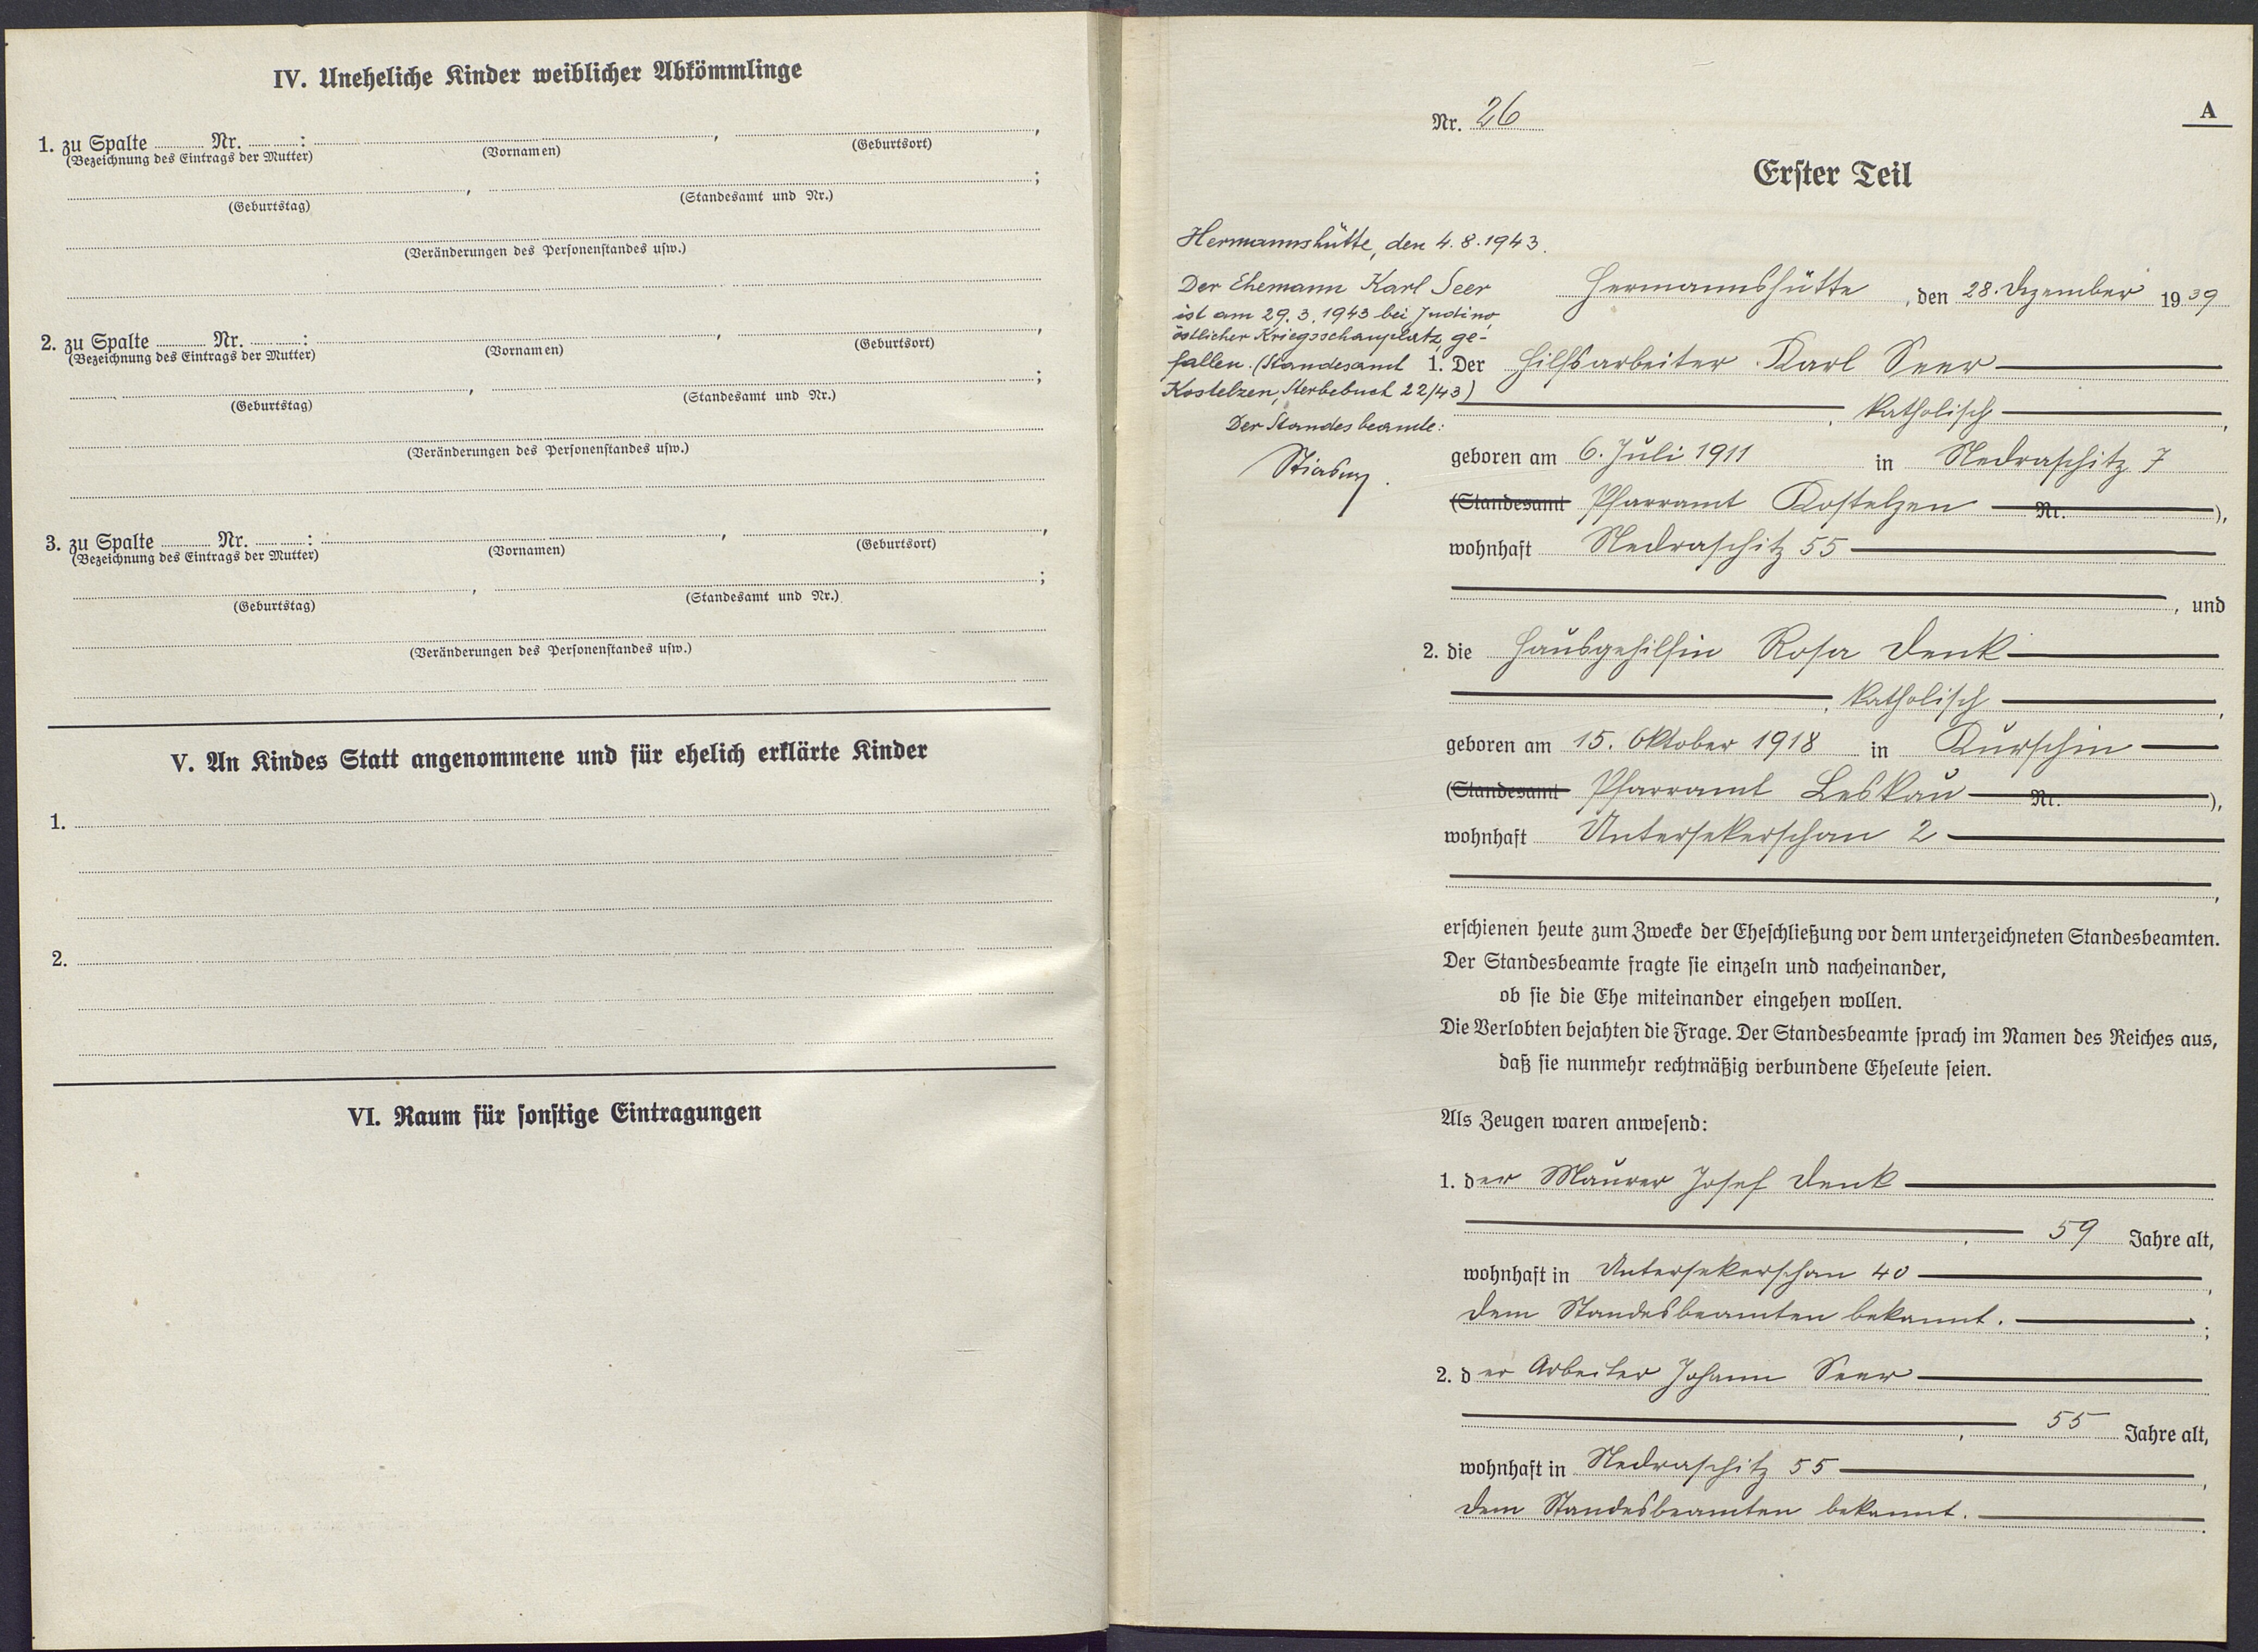 IV. Uneheliche Kinder weiblicher Abkömmlinge
1. zu Spalte ........ Nr. ........: ........, ........,
(Bezeichnung des Eintrags der Mutter) (Vornamen) (Geburtsort)
........, ........;
(Geburtstag) (Standesamt und Nr.)
(Veränderungen des Personenstandes usw.)
2. zu Spalte ........ Nr. ........: ........, ........,
(Bezeichnung des Eintrags der Mutter) (Vornamen) (Geburtsort)
........, ........;
(Geburtstag) (Standesamt und Nr.)
(Veränderungen des Personenstandes usw.)
3. zu Spalte ........ Nr. ........: ........, ........,
(Bezeichnung des Eintrags der Mutter) (Vornamen) (Geburtsort)
........, ........;
(Geburtstag) (Standesamt und Nr.)
(Veränderungen des Personenstandes usw.)
V. An Kindes Statt angenommene und für ehelich erklärte Kinder
1.
2.
VI. Raum für sonstige Eintragungen
A
Nr. 26
Erster Teil
Hermannshütte, den 4.8.1943.
Der Ehemann Karl Seer
ist am 29.3.1943 bei Judino,
östlicher Kriegsschauplatz, ge-
fallen. (Standesamt
Kostelzen, Sterbebuch 22/43)
Der Standesbeamte:
Hermannshütte, den 28. Dezember 1939
1. Der Hilfsarbeiter Karl Seer
, katholisch,
geboren am 6. Juli 1911 in Nedraschitz 7
(Standesamt Pfarramt Kostelzen Nr. ),
wohnhaft Nedraschitz 55
, und
2. die Hausgehilfin Rosa Denk
, katholisch,
geboren am 15. Oktober 1918 in Kurschin
(Standesamt Pfarramt Leskau Nr. ),
wohnhaft Untersekerschan 2
,
erschienen heute zum Zwecke der Eheschließung vor dem unterzeichneten Standesbeamten.
Der Standesbeamte fragte sie einzeln und nacheinander,
ob sie die Ehe miteinander eingehen wollen.
Die Verlobten bejahten die Frage. Der Standesbeamte sprach im Namen des Reiches aus,
daß sie nunmehr rechtmäßig verbundene Eheleute seien.
Als Zeugen waren anwesend:
1. der Maurer Josef Denk
, 59 Jahre alt,
wohnhaft in Untersekerschan 40,
dem Standesbeamten bekannt. ;
2. der Arbeiter Johann Seer
, 55 Jahre alt,
wohnhaft in Nedraschitz 55,
dem Standesbeamten bekannt. .